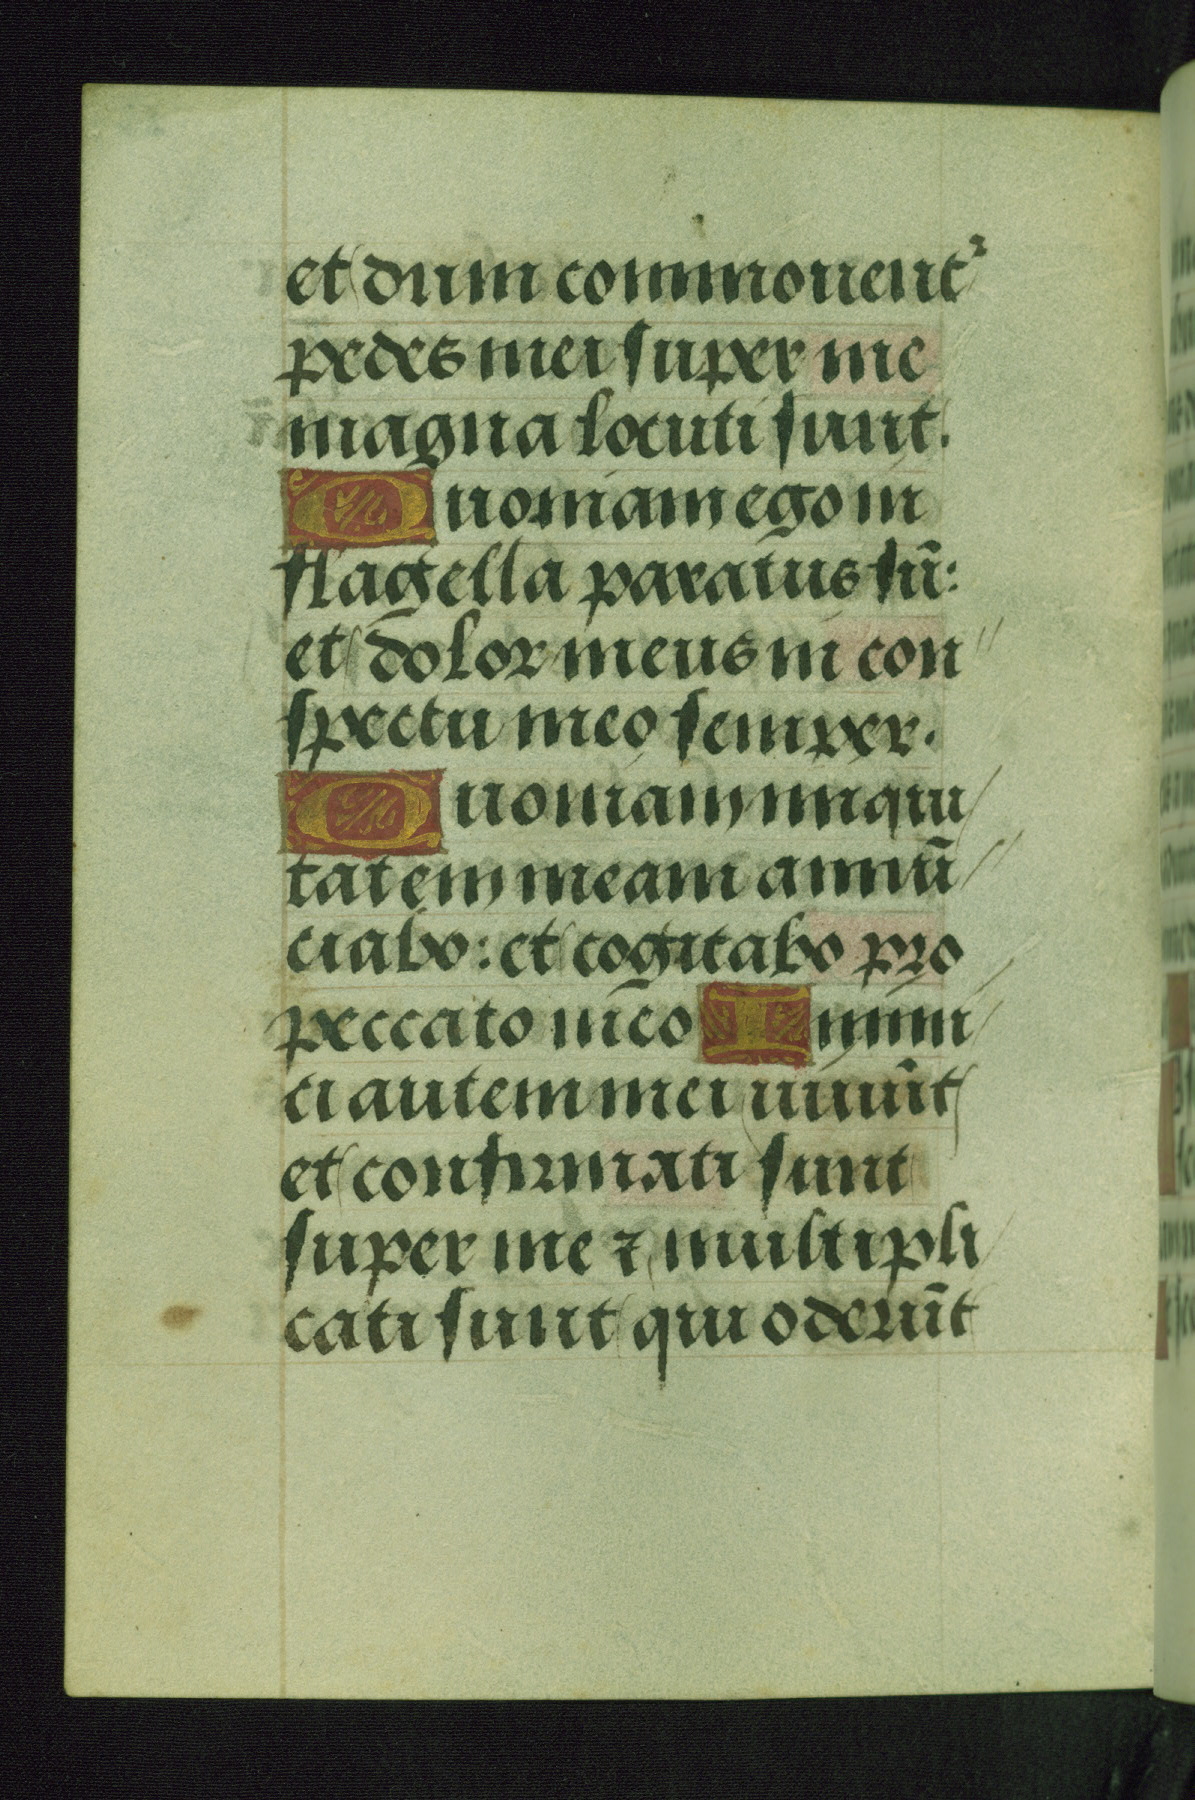 et dum commouent᷑
pedes mei super me
magna locuti sunt.
Quoniam ego in
flagella paratus sū:
et dolor meus in con
spectu meo semper.
Quoniam iniqui
tatem meam annū
ciabo: et cogitabo pro
peccato meo Inimi
ci autem mei uiuūt
et confirmati sunt
super me ⁊ multipli
cati sunt qui oderūt